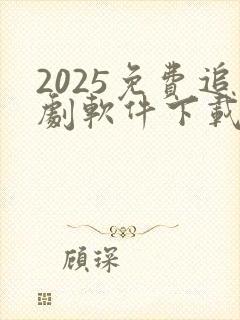 2025免費追
劇軟件下載
顧琛